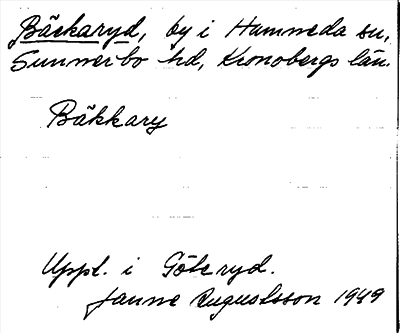 Bäckaryd, by i Hamneda sn,
Sunnerbo hd, Kronobergs län.
Bäkkary
Uppt. i Göteryd.
Janne Augustsson 1949